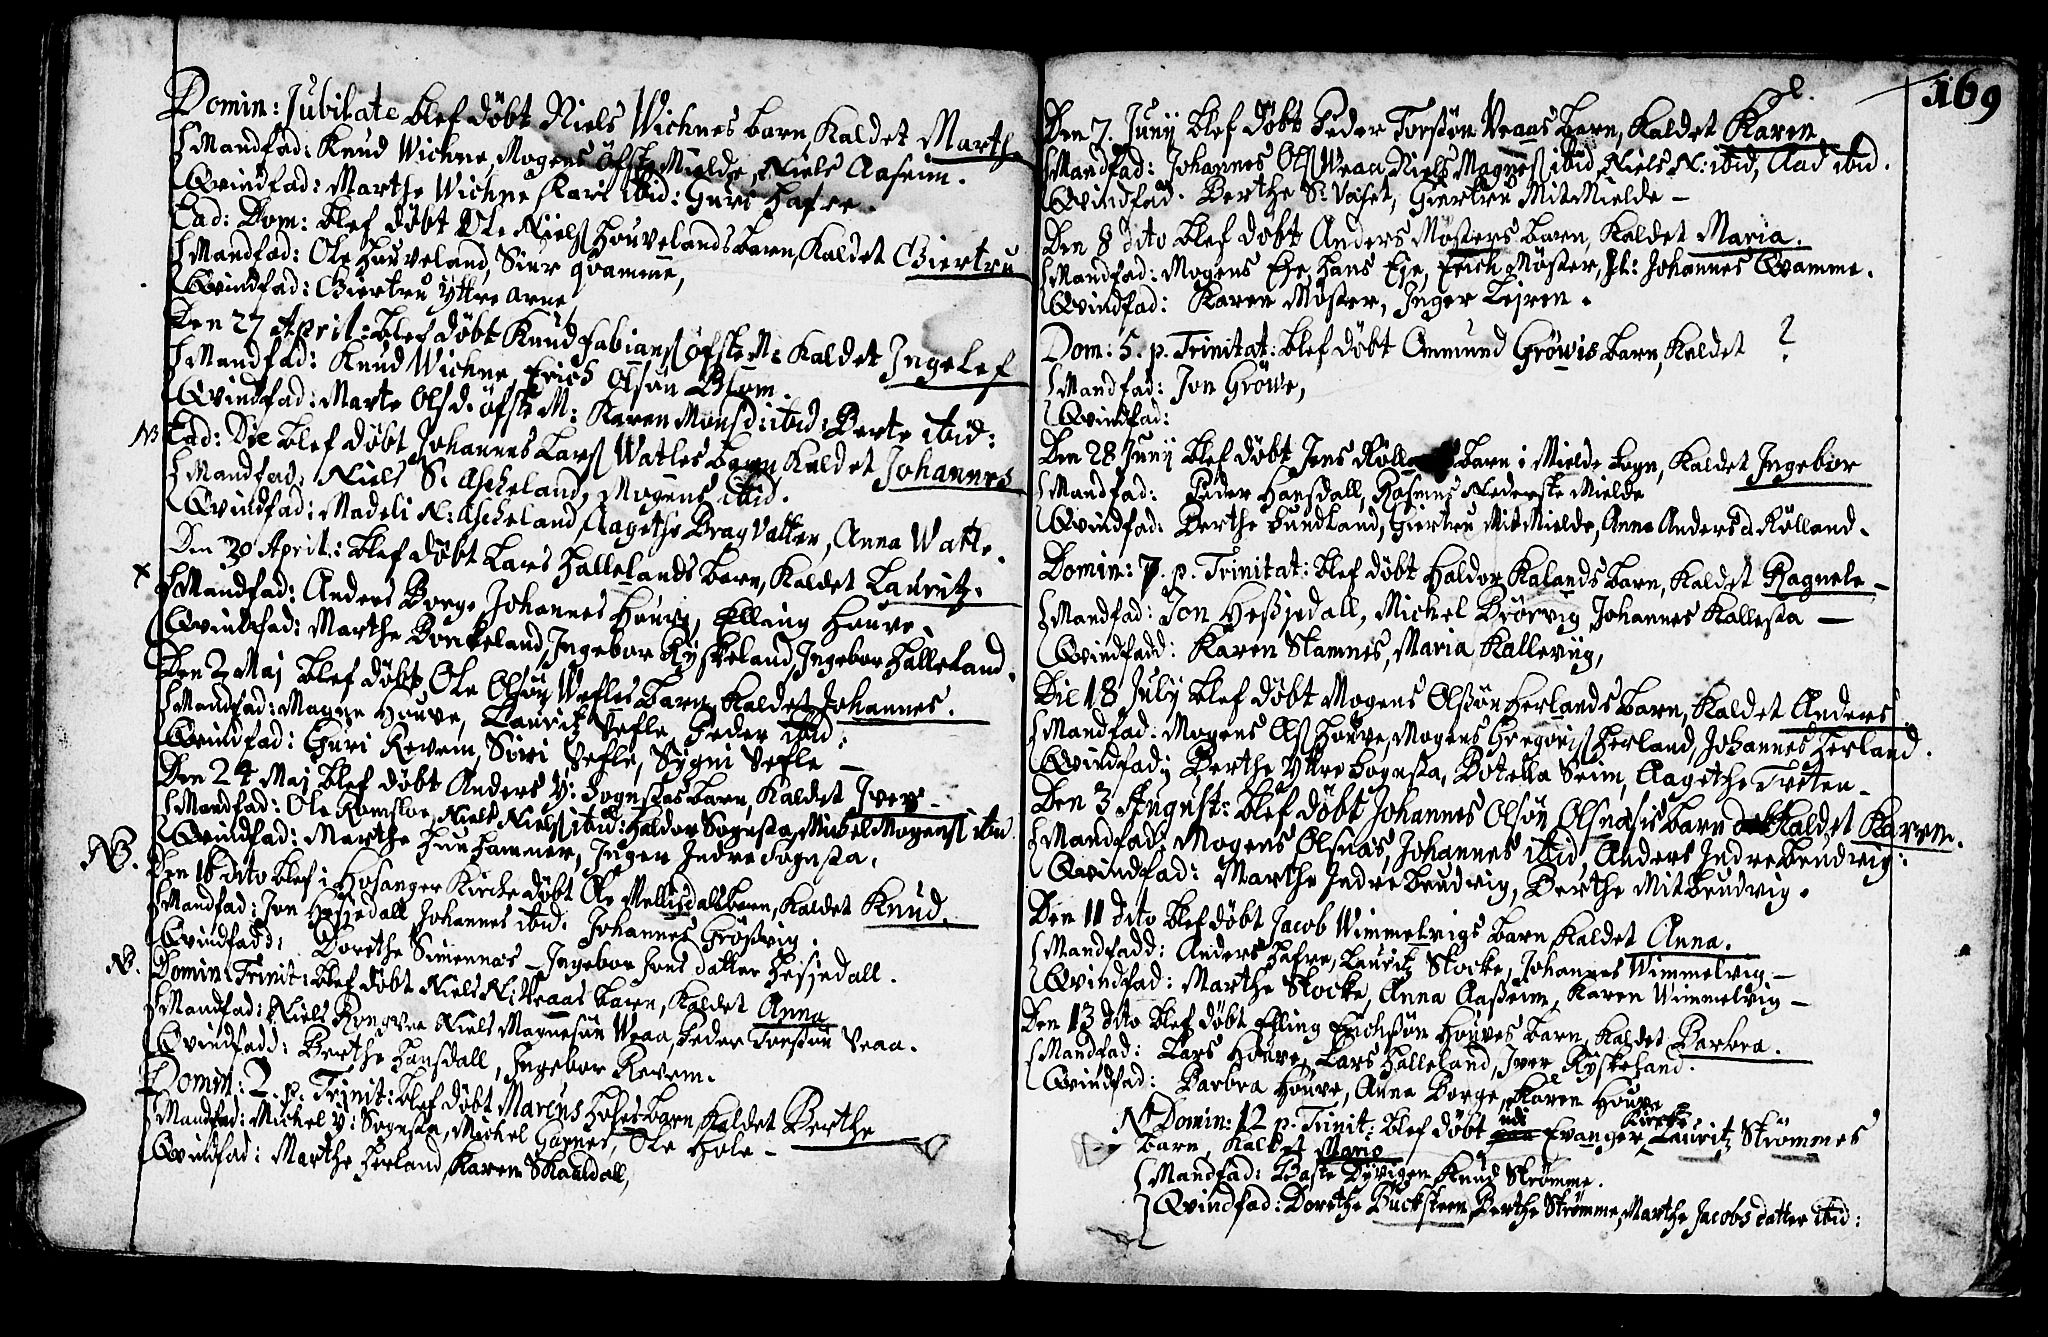 Domin: Jubilate blef döbt Niels Wichnes barn, Kaldet Marthe
Mandfad: Knud Wichne, Mogens öfste Mielde, Niels Aaseim.
Qvindfad: Marthe Wichne Kari ibid: Guri Hafre.
Ead: Dom: blef döbt Ole Niels Houvelands barn, Kaldet Giertru
Mandfad: Ole Houveland, Siur qvamme,
Qvindfad: Giertru Yttre Arne
Den 27 April: blef döbt Knud Fabians öfste M: Kaldet Ingelef
Mandfad: Knud Wichne Erich Olsön Blom.
Qvindfad: Marte Olsd: öfste M: Karen Monsd: ibid: Berte ibid:
NB Ead: Die blef döbt Johannes Lars Watles barn Kaldet Johannes
Mandfad: Niels S: Ascheland, Mogens ibid.
Qvindfad: Madeli N: Ascheland Aagethe Bragvatten, Anna Watle.
Den 30 April: blef döbt Lars Hallelands barn, Kaldet Lauritz.
x Mandfad: Anders Borge Johannes Houve, Elling Houve.
Qvindfad: Marthe Bonkeland, Ingebor Ryskeland, Ingebor Halleland.
Den 2 Maj blef döbt Ole Olsön Wefles barn, Kaldet Johannes.
Mandfad: Magne Houve, Lauritz Vefle, Peder ibid.
Qvindfad: Guri Revem, Siwi Vefle, Sygni Vefle —
Den 24 Maj blef döbt Anders Y: Sognstas barn, Kaldet Iver —
Mandfad: Ole Romsloe, Niels Niels ibid: Haldor Sognsta, Michel Mogens ibid.
Qvindfad: Marthe Hun Hammer, Inger Indre Sognsta,
NB. Den 16 dito blef i Hosanger Kirche döbt Ole Mellisdals barn, Kaldet Knud.
Mandfad: Jon Hesjedall Johannes ibid: Johannes Grösvig.
Qvindfadd: Dorethe Simennes — Ingebor Jons datter Hesjedall.
NB. Domin: Trinit: blef döbt Niels N: Veaas barn, Kaldet Anna
Mandfad: Niels Rongved Niels Magnesön Veaa, Peder Torssön Veaa.
Qvindfadd: Berthe Hansdall, Ingebor Revem.
Domin: 2. p. Trinit: blef döbt Marcus Holes barn, Kaldet Berthe
Mandfad: Michel Y: Sognsta, Michel Garnes, Ole Hole —
Qvindfad: Marthe Herland Karen Skauldall,
169
Den 7. Junij blef döbt Peder Torssön Veaas barn, Kaldet Karen
Mandfad: Johannes Ols Veaa, Niels Magnes ibid, Niels N: ibid, Aad ibid.
Qvindfad. Berthe S: Vaset, Giertru MitMielde —
Den 8 dito blef döbt Anders Mösters barn, Kaldet Maria.
Mandfad: Mogens Eje, Hans Eje, Erich Möster, Johannes Qvamme.
Qvindfad: Karen Möster, Inger Lejren.
Dom: 5. p. Trinitat: blef döbt Ommund Gröwis barn, Kaldet ?
Mandfad: Jon Gröwe,
Qvindfad:
Den 28 Junij blef döbt Jens barn i Mielde Sogn, Kaldet Ingebor
Mandfad: Peder Hansdall, Rasmus Nederste Mielde
Qvindfad: Berthe Sundland, Giertru MitMielde, Anna Anders d Rölland.
Domin: 7. p. Trinitat: blef döbt Haldor Kalands barn, Kaldet Ragnele —
Mandfad: Jon Hessjedall, Michel Brörvig Johannes Kallesta —
Qvindfadd: Karen Stamnes, Maria Kalleviig,
Die 18 July blef döbt Mogens Olssön Herlands barn, Kaldet Anders
Mandfad: Mogens Ols Houve, Mogens Gregoris Herland, Johannes Herland.
Qvindfad: Berthe Yttre Sognsta, Botella Seim, Aagethe Tveten —
Den 3 August: blef döbt Johannes Olsön Olsnæsis barn Kaldet Karen.
Mandfad: Mogens Olsnæs, Johannes ibid, Anders Indre Brudvig:
Qvindfad: Marthe Indre Brudvig, Berthe Mit Brudvig.
Den 11 dito blef döbt Jacob Wimmelvigs barn Kaldet Anna.
Mandfadd: Anders Hafre, Lauritz Stocke, Johannes Wimmelvig —
Qvindfad: Marthe Stocke, Anna Aasseim, Karen Wimmelvig —
Den 13 dito blef döbt Elling Erichssön Houves barn, Kaldet Barbra.
Mandfad: Lars Houve, Lars Halleland, Iver Ryskeland.
Qvindfad: Barbra Houve, Anna Borge, Karen Houve
Nt Domin: 12 p. Trinit: blef döbt udi Evanger Kirche Lauritz Strömmes
barn, Kaldet Marie
Mandfad: Baste Dyvigen Knud Strömme.
Qvindfad: Dorethe Bucksteen Berthe Strömme, Marthe Jacobs datter ibid: